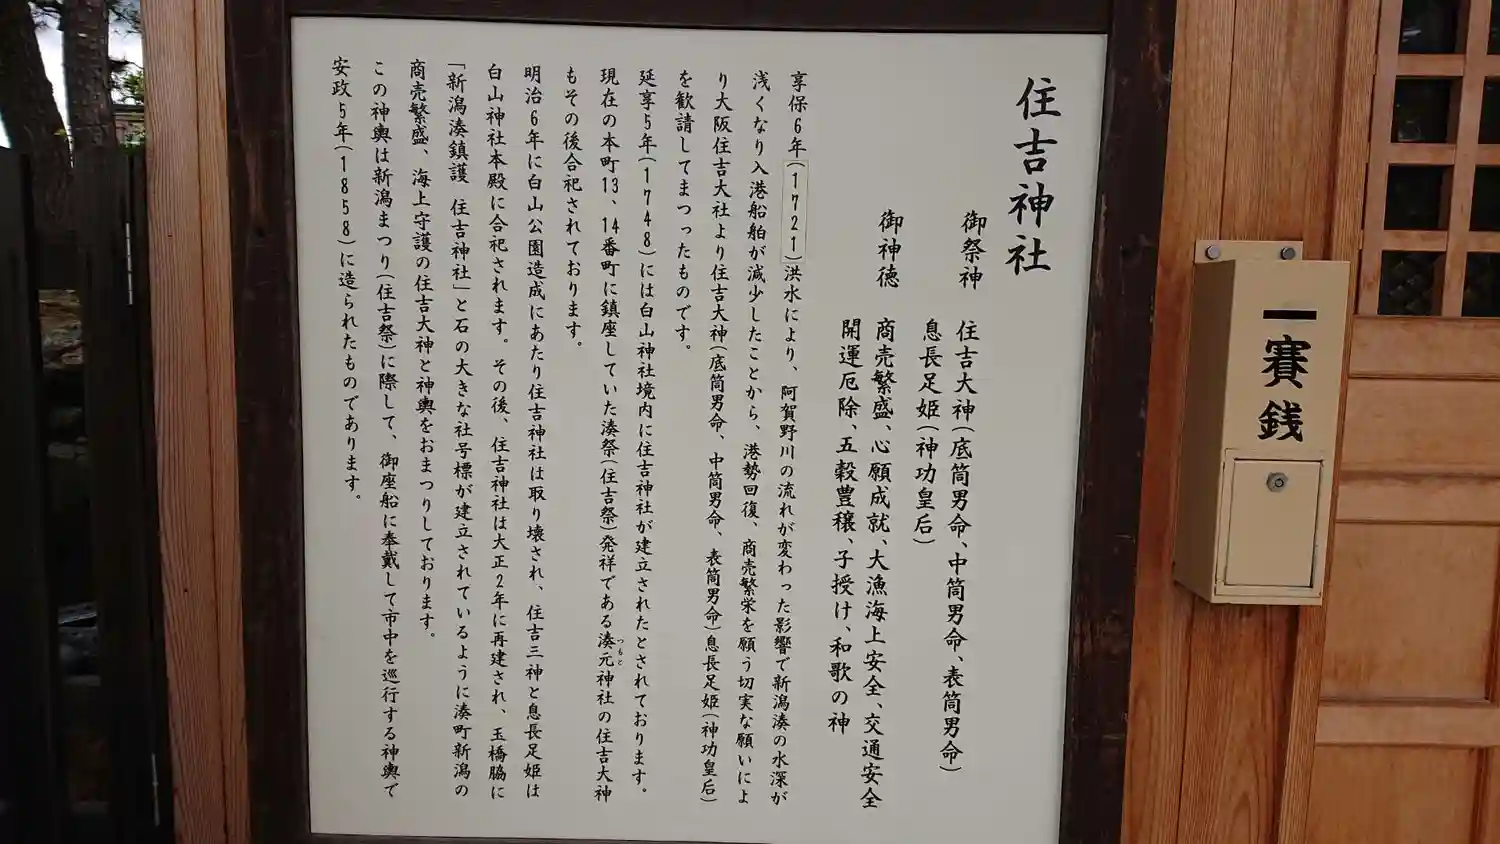 住吉神社
御祭神 住吉大神(底筒男命、中筒男命、表筒男命)
息長足姫(神功皇后)
御神徳 商売繁盛、心願成就、大漁海上安全、交通安全
開運厄除、五穀豊穣、子授け、和歌の神
享保6年(1721)洪水により、阿賀野川の流れが変わった影響で新潟湊の水深が
浅くなり入港船舶が減少したことから、港勢回復、商売繁栄を願う切実な願いによ
り大阪住吉大社より住吉大神(底筒男命、中筒男命、表筒男命)息長足姫(神功皇后)
を歓請してまつったものです。
延享5年(1748)には白山神社境内に住吉神社が建立されたとされております。
現在の本町13、14番町に鎮座していた湊祭(住吉祭)発祥である湊元神社の住吉大神
つもと
もその後合祀されております。
明治6年に白山公園造成にあたり住吉神社は取り壊され、住吉三神と息長足姫は
白山神社本殿に合祀されます。その後、住吉神社は大正2年に再建され、玉橋脇に
「新潟湊鎮護 住吉神社」と石の大きな社号標が建立されているように湊町新潟の
商売繁盛、海上守護の住吉大神と神輿をおまつりしております。
この神輿は新潟まつり(住吉祭)に際して、御座船に奉戴して市中を巡行する神輿で
安政5年(1858)に造られたものであります。
賽銭